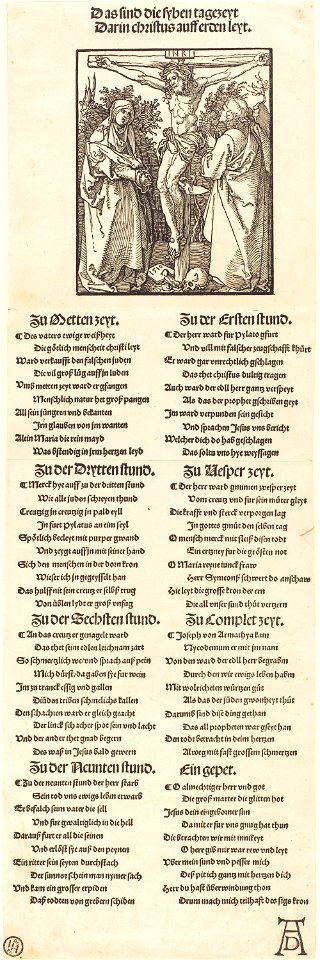 Das sind die syben tagezeyt
Darin christus auff erden leyt.
INRI
Zu Metten zeyt.
Des vaters ewige weißheyt
Die götlich menscheit christi leyt
Ward verkaufft den falschen juden
Die vil groß lüg auff jn luden
Vmb metten zeyt ward er gfangen
Menschlich natur het groß pangen
All sein jüngren vnd bekanten
Jrn glauben von jm wanten
Allein Maria die rein mayd
Was bstendig in jrm hertzen leyd
Zu der Ersten stund.
Der herr ward für Pylato gfurt
Vnd vill mit falscher zeugschafft
Er ward gar vnrechtlich gschlagen
Das thet christus dultig tragen
Auch ward der edl herr gantz verspeyt
Als das der prophet gschriben geyt
Jm ward verpunden sein gesicht
Vnd sprachen Jesus vns bericht
Welcher dich do hab geschlagen
Das soltu vns hye wyssagen
Zu der Drytten stund.
Merck hye auff zu der dritten stund
Wie all juden schreyen thund
Creutzig jn creutzig jn pald eyl
Jn furt Pylatus an eim seyl
Spötlich becleyt mit purper gwand
Vnd zeygt auff jn mit seiner hand
Sich den menschen in der dorn kron
Wie ser ich jn gegeysselt han
Das hulff nit sein creutz er selbs trug
Von üblen lydt er groß vnfug
Zu Vesper zeyt.
Der herr ward gnumen zu vesper zeyt
Vom creutz vnd für sein müter gleyt
Die krafft vnd sterck verporgen lag
Jn gottes gmüt den selben tag
O mensch merck mit fleiß disen todt
Ein ertzney für die grösten not
O Maria reyne junckfraw
Herr Symeonß schwert do anschaw
Hie leyt die grosse kron der ern
Die all vnser sund thut verzern
Zu der Sechsten stund.
An das creutz er genagelt ward
Das thet seim edlen leichnam zart
So schmerzlich we vnd sprach auß pein
Mich dürst, da gaben sye für wein
Jm zu tranck essig vnd gallen
Düden triben schmelichs kallen
Den schachren ward er gleich geacht
Der linck schacher spot sein vnd lacht
Vnd der ander thet gnad begern
Des waß in Jesus bald gewern
Zu Complet zeyt.
Joseph von Armathya kam
Nycodemum er mit jm nam
Von den ward der edl herr begraben
Durch den wir ewigs leben haben
Mit wolriechen würtzen güt
Als das der juden gwonheyt thut
Darumb sind dise ding gethan
Das all propheten war gseyt han
Den todt betracht in deim hertzen
Alweg mit fast grossem schmertzen
Zu der Neunten stund.
Zu der neunten stund der herr starb
Sein tod vns ewigs leben erwarb
Er befalch seim vater die sell
Vnd fur gwaltiglich in die hell
Darauß furt er all die seinen
Vnd erlöst sye auß den peynen
Ein ritter sein seyten durchstach
Die sunnen schein man nymer sach
Vnd kam ein grosser erpiden
Daß todten von grebern schiden
Ein gepet.
O almechtiger herr vnd got
Die groß marter die glitten hot
Jesus dein eingeborner sun
Damit er für vns gnug hat thun
Die betrachten wir mit innikeyt
O herr gib mir war rew vnd leyt
Vber mein sund vnd pesser mich
Deß pit ich gantz mit hertzen dich
Herr du hast überwindung thon
Drum mach mich teilhaft des sigs kron
AD